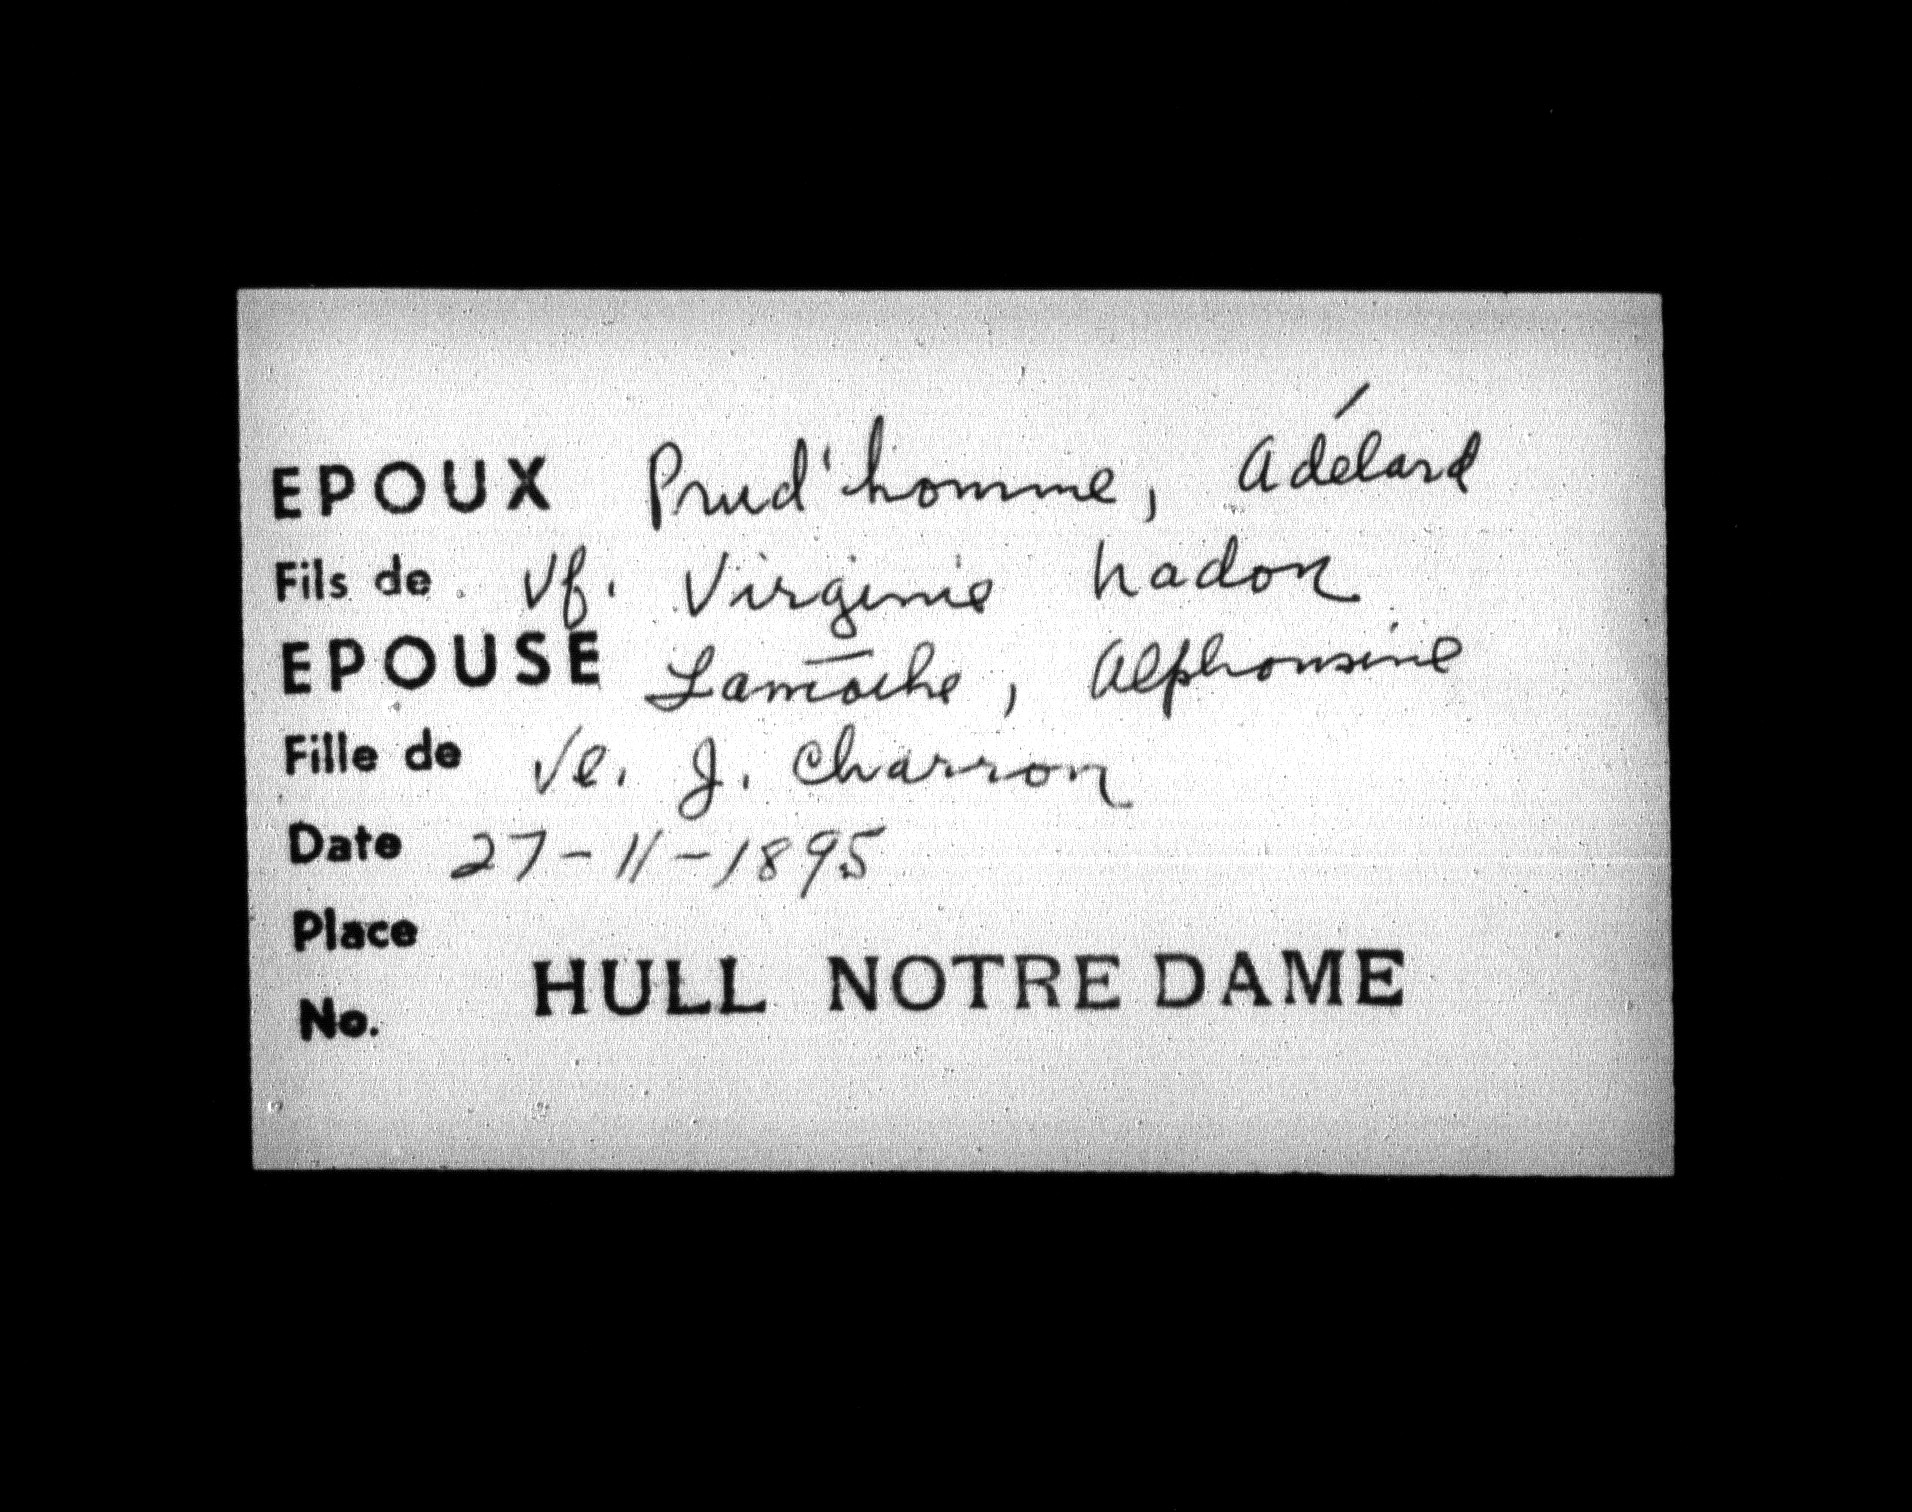 EPOUX Prud'homme, Adélard
Fils de Vf. Virginie Nadon
EPOUSE Lamoche, Alphonsine
Fille de Ve. J. Charron
Date 27-11-1895
Place
HULL NOTRE DAME
No.